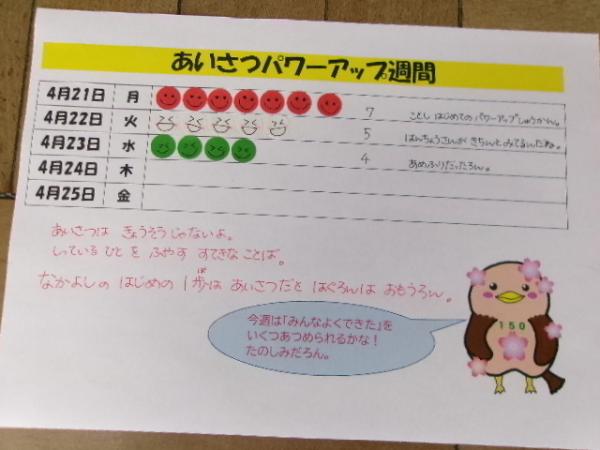 あいさつパワーアップ週間
4月21日 月 7 ことし はじめての パワーアップしゅうかん。
4月22日 火 5 はんちょうさんが きちんと みてるんだね。
4月23日 水 4 あめふりだったろん。
4月24日 木
4月25日 金
あいさつは きょうそうじゃないよ。
しっているひと を ふやす すてきな ことば。
なかよしの はじめの 1歩は あいさつだと はぐろんは おもうろん。
ぽ
今週は「みんなよくできた」を
いくつあつめられるかな!
たのしみだろん。
150